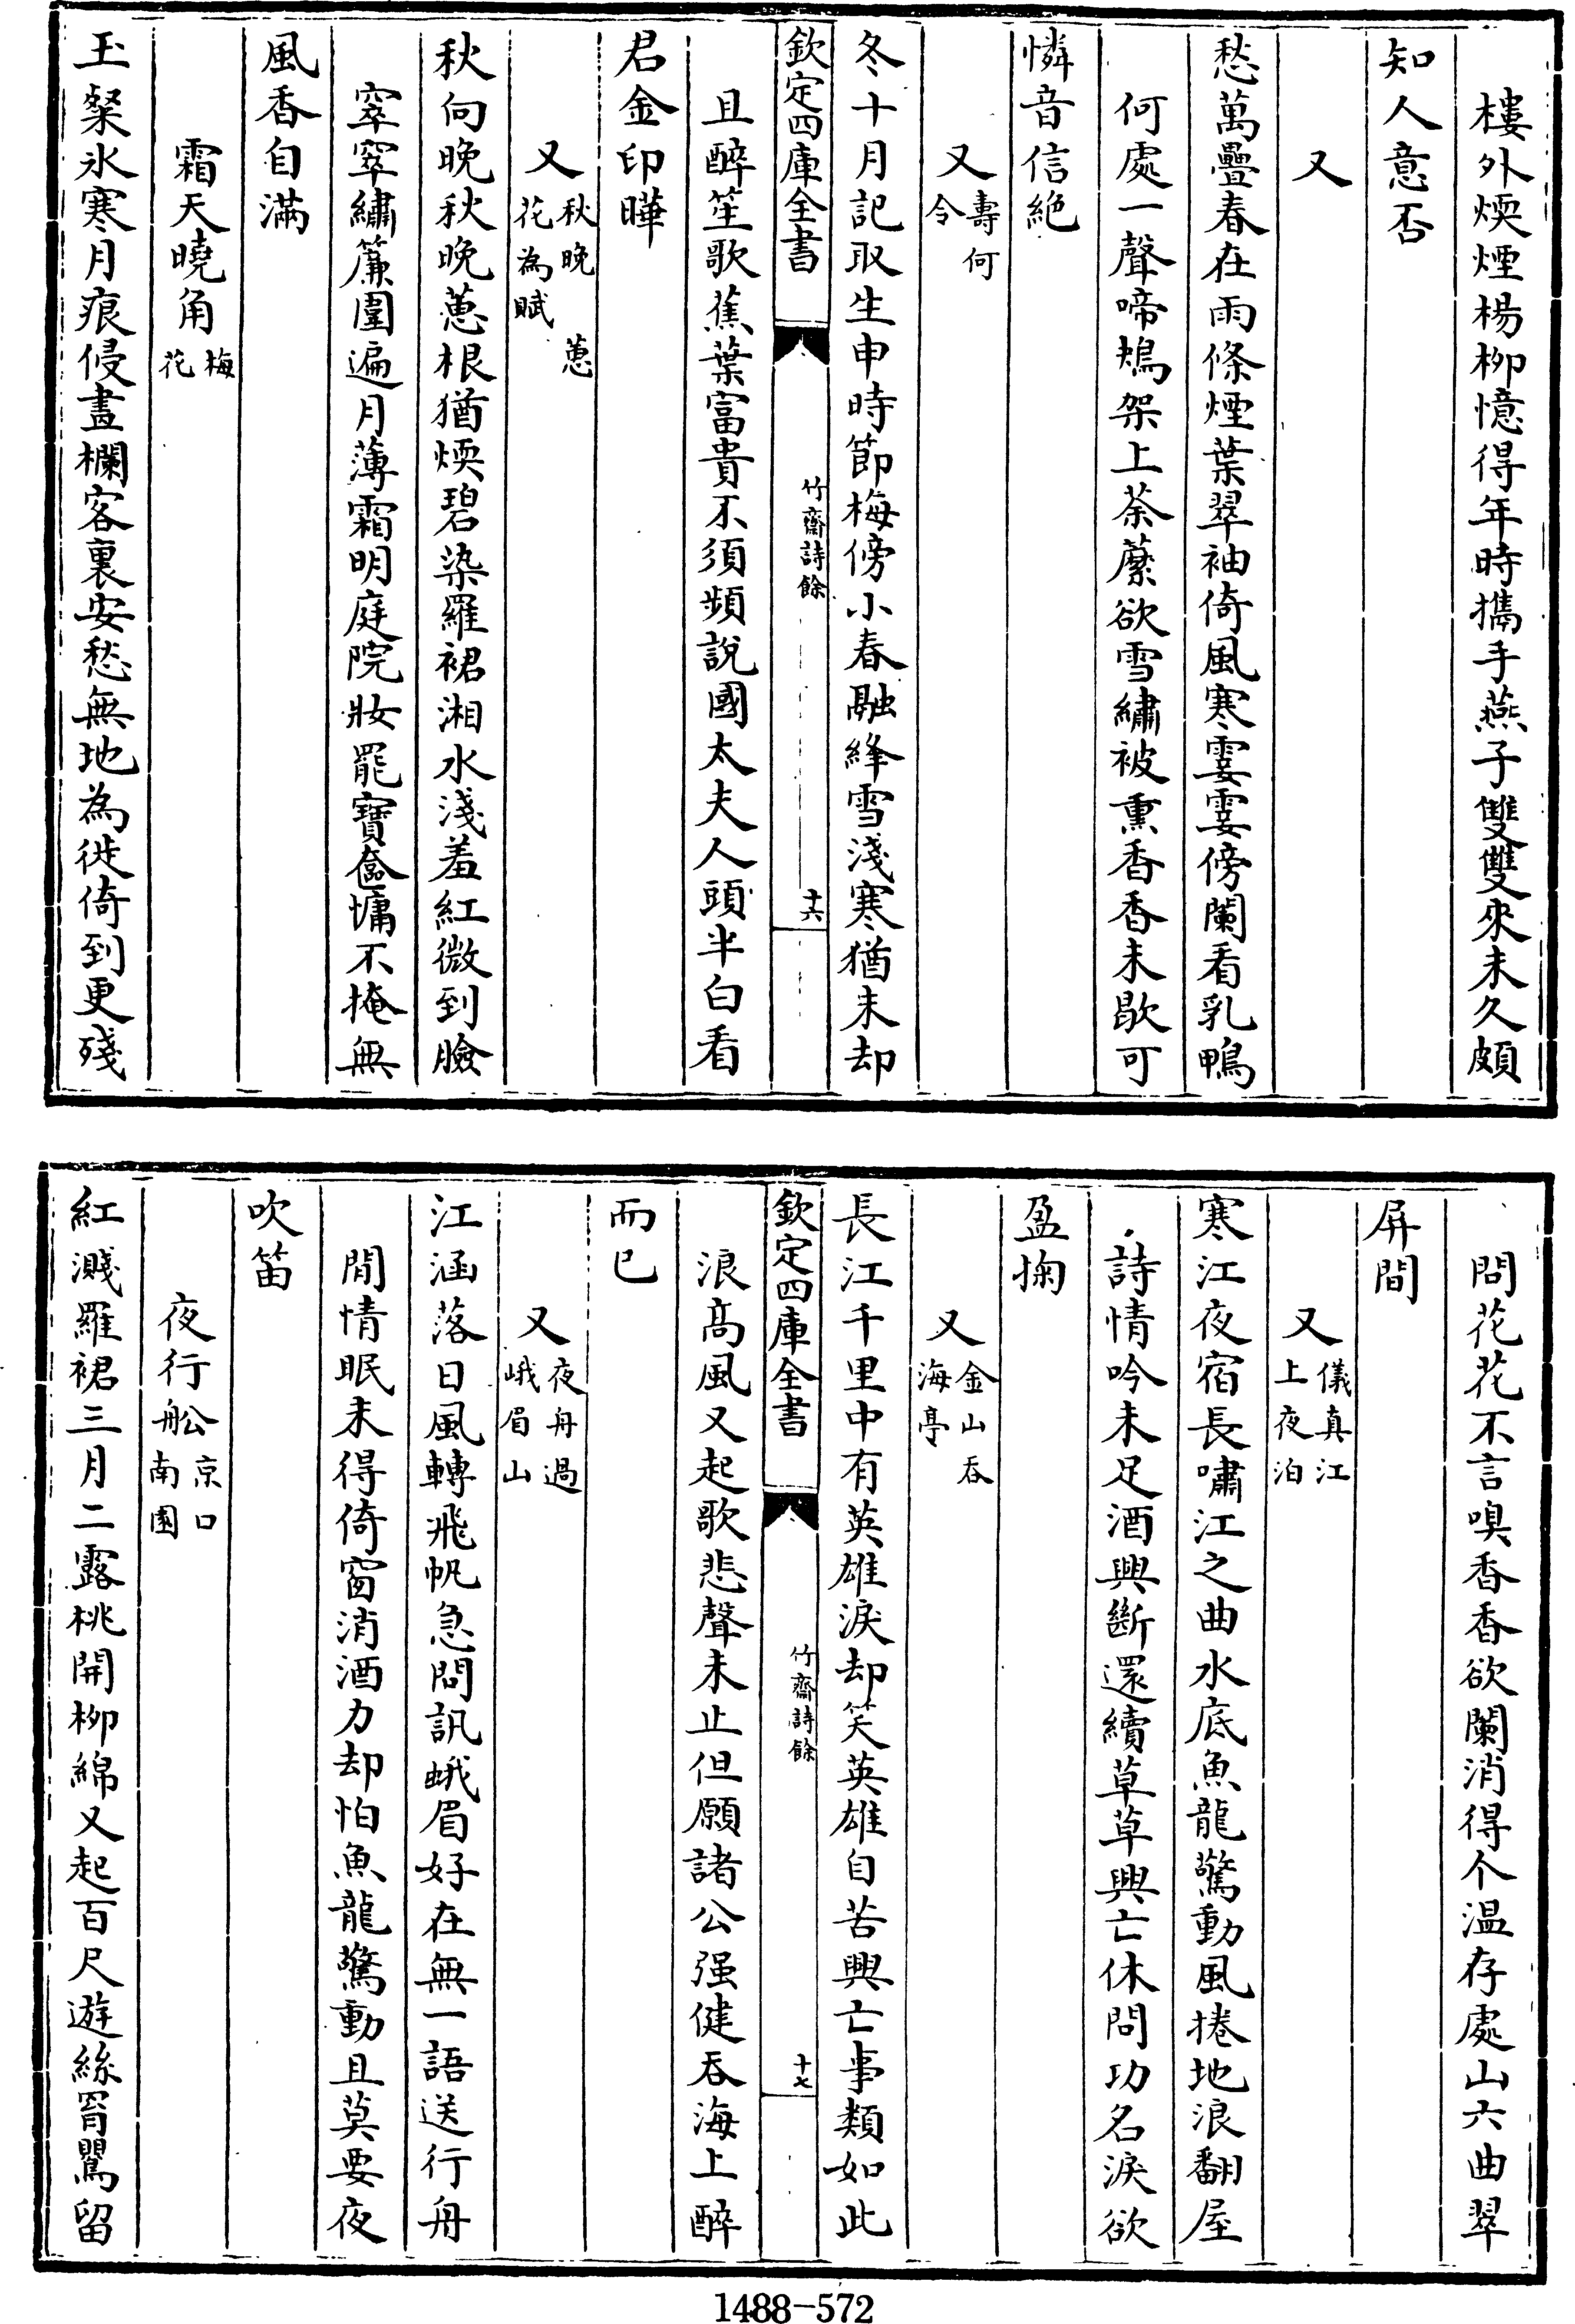 樓外煙煙楊柳憶得年時攜手燕子雙雙來未久頗
知人意否
又
愁萬疊春在雨條煙葉翠袖倚風寒霎霎傍闌看乳鴨
何處一聲啼鴂架上荼蘼欲雪繡被熏香香未歇可
憐音信絶
又壽何令
冬十月記取生申時節梅傍小春融絳雪淺寒猶未却
欽定四庫全書
竹齋詩餘
十六
且醉笙歌蕉葉富貴不須頻說國太夫人頭半白看
君金印曄
又秋晚蕙花為賦
秋向晚秋晚蕙根猶煖碧染羅裙湘水淺羞紅微到臉
窣窣繡簾圍遍月薄霜明庭院妝罷寶奩慵不掩無
風香自滿
霜天曉角梅花
玉粲氷寒月痕侵畫欄客裏安愁無地為徙倚到更殘
問花花不言嗅香香欲闌消得个温存處山六曲翠
屏間
又儀真江上夜泊
寒江夜宿長嘯江之曲水底魚龍驚動風捲地浪翻屋
詩情吟未足酒興斷還續草草興亡休問功名淚欲
盈掬
又金山吞海亭
長江千里中有英雄淚却笑英雄自苦興亡事類如此
欽定四庫全書
竹齋詩餘
十七
浪高風又起歌悲聲未止但願諸公强健吞海上醉
而已
又夜舟過峨眉山
江涵落日風轉飛帆急問訊蛾眉好在無一語送行舟
閒情眠未得倚窗消酒力却怕魚龍驚動且莫要夜
吹笛
夜行船京口南園
紅濺羅裙三月二露桃開柳綿又起百尺遊絲罥鴛留
1488-572